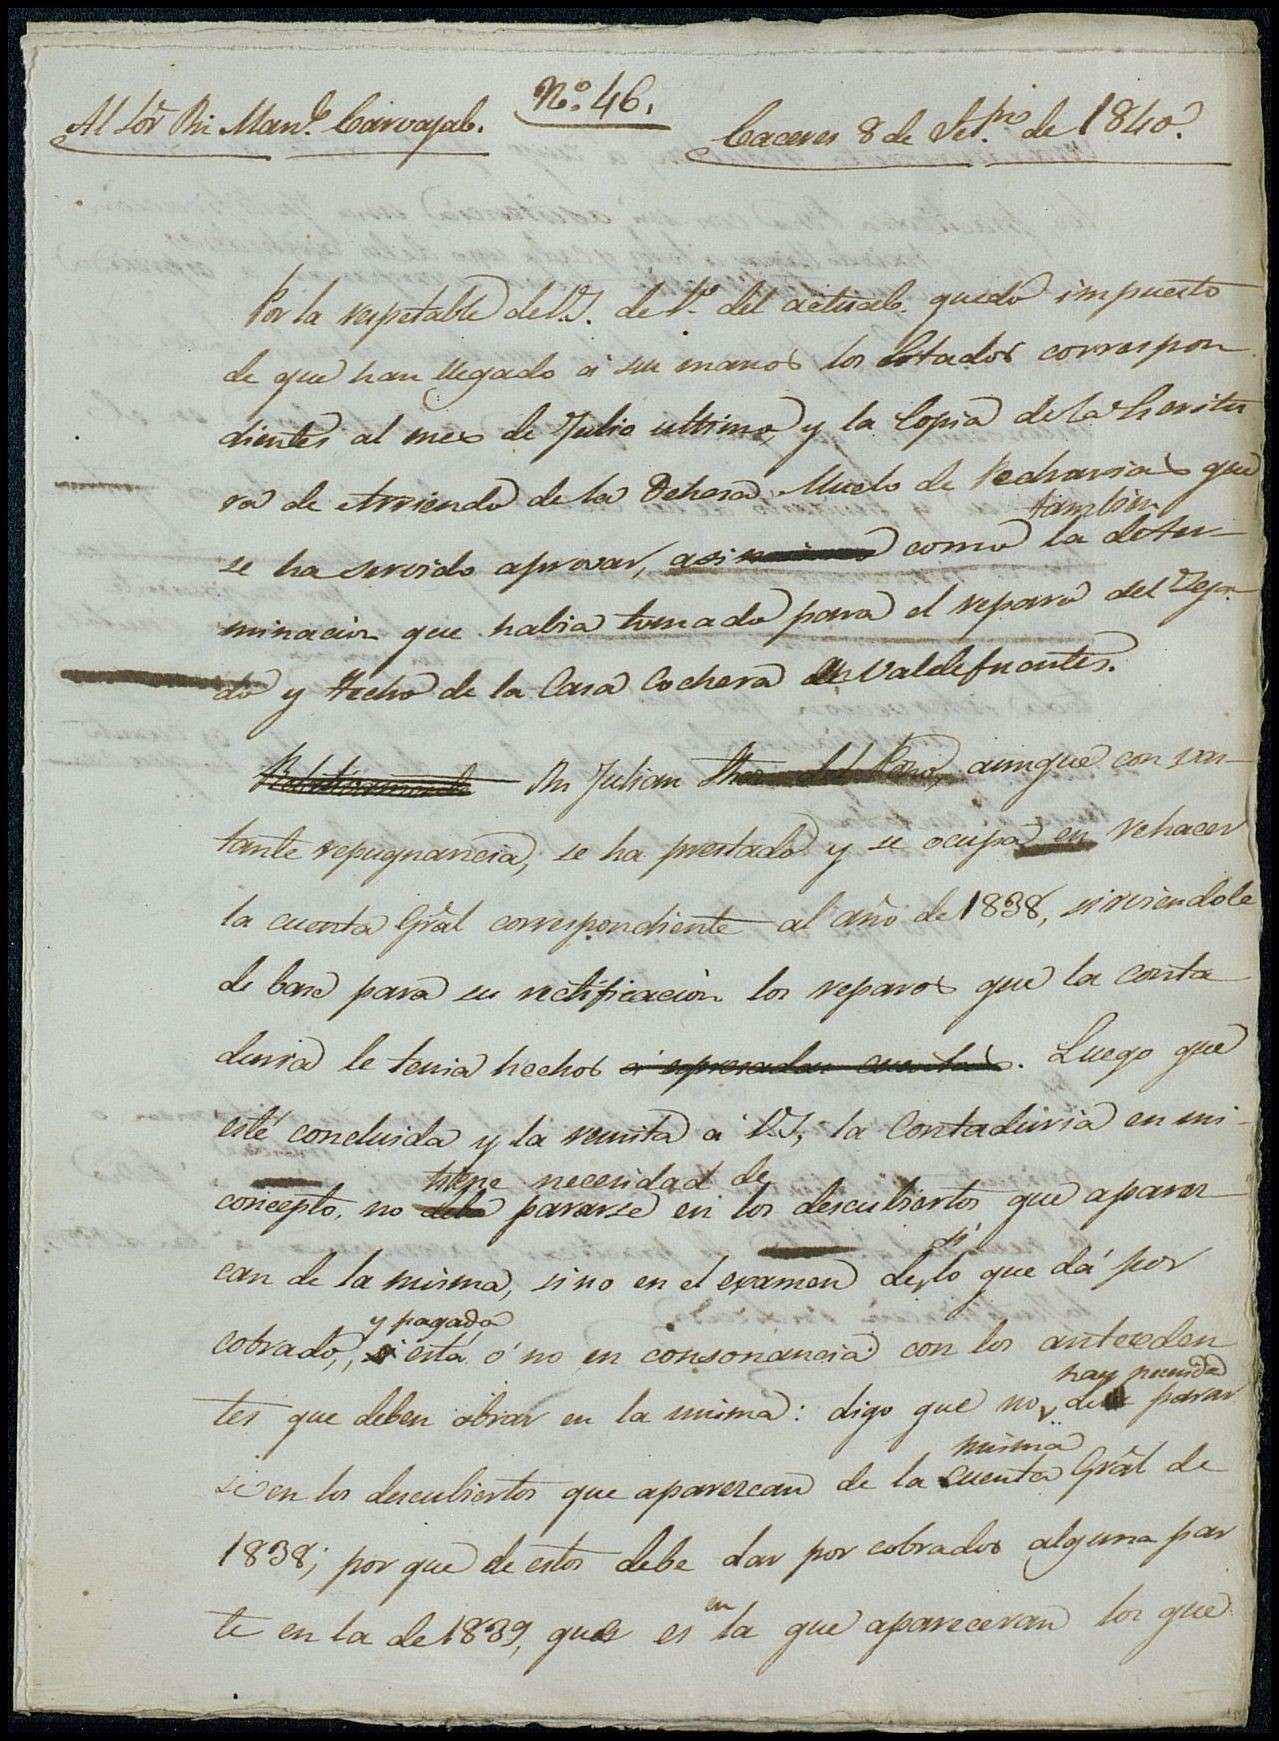 Nº 46.
Al Sõr Dn Manl. Carvajal.
Caceres 8 de Setpre. de 1840.
Por la respetable de V.S. de 1º del actual quedo impuesto
de que han llegado á sus manos los Estados correspon
dientes al mes de Julio ultimo, y la Copia de la Escritu
ra de Arriendo de la Dehesa Muelo de que
tambien
se ha servido aprovar, asi como la deter-
minacion que habia tomado para el reparo del Teja-
do y Techo de la Casa Cochera de Valdefuentes.
Relativamente Dn Julian del Pozo, aunque con vas-
tante repugnancia, se ha prestado y se ocupa en rehacer
la cuenta Grãl correspondiente al año de 1838, sirviendole
de base para su rectificacion los reparos que la conta
duria le tenia hechos á espresadas cuentas. Luego que
esté concluida y la remita á V.S, la Contaduria en mi
tiene necesidad de
concepto, no debe pararse en los descubiertos que aparez-
si
can de la misma, sino en el examen de lo que dá por
y pagado
cobrado, si está ó no en consonancia con los anteceden
hay necesidad
tes que deben obrar en la misma: digo que no de parar
misma
se en los descubiertos que aparezcan de la cuenta Grãl de
1838; por que de estos debe dar por cobrados alguna par
en
te en la de 1839, que es la que apareceran los que